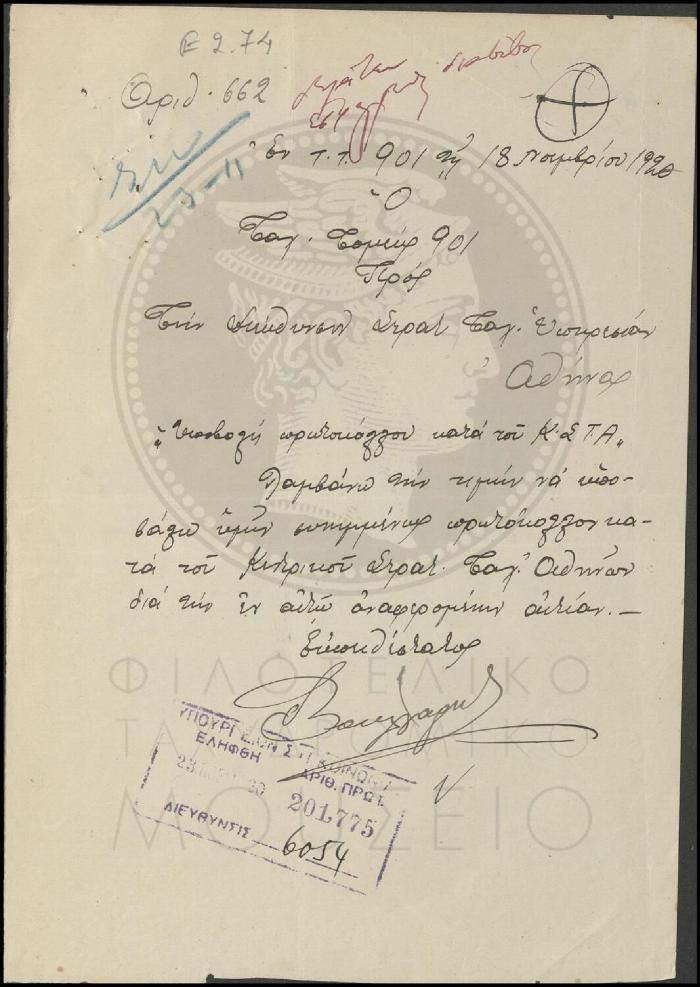 Ε 2.74
Αριθ. 662
23-11
Ἐν Τ.Τ. 901 τῇ 18 Νοεμβρίου 1920
Ὁ
Ταχ. Τομεύς 901
Πρός
Τήν Διεύθυνσιν Στρατ. Ταχ. Ὑπηρεσιῶν
Ἀθήνας
"Ὑποβολή πρωτοκόλλου κατά τοῦ Κ.Σ.Τ.Α."
Λαμβάνω τήν τιμήν νά ὑπο-
βάλω ὑμῖν συνημμένως πρωτόκολλον κα-
τά τοῦ Κεντρικοῦ Στρατ. Ταχ. Ἀθηνῶν
διά τήν ἐν αὐτῷ ἀναφερομένην αἰτίαν.—
Εὐπειθέστατος
ΥΠΟΥΡΓΕΙΟΝ ΣΥΓΚΟΙΝΩΝ
ΕΛΗΦΘΗ ΑΡΙΘ. ΠΡΩΤ.
201,775
ΔΙΕΥΘΥΝΣΙΣ 6054
ΦΙΛΟΤΕΛΙΚΟ
ΤΑΧΥΔΡΟΜΙΚΟ
ΜΟΥΣΕΙΟ